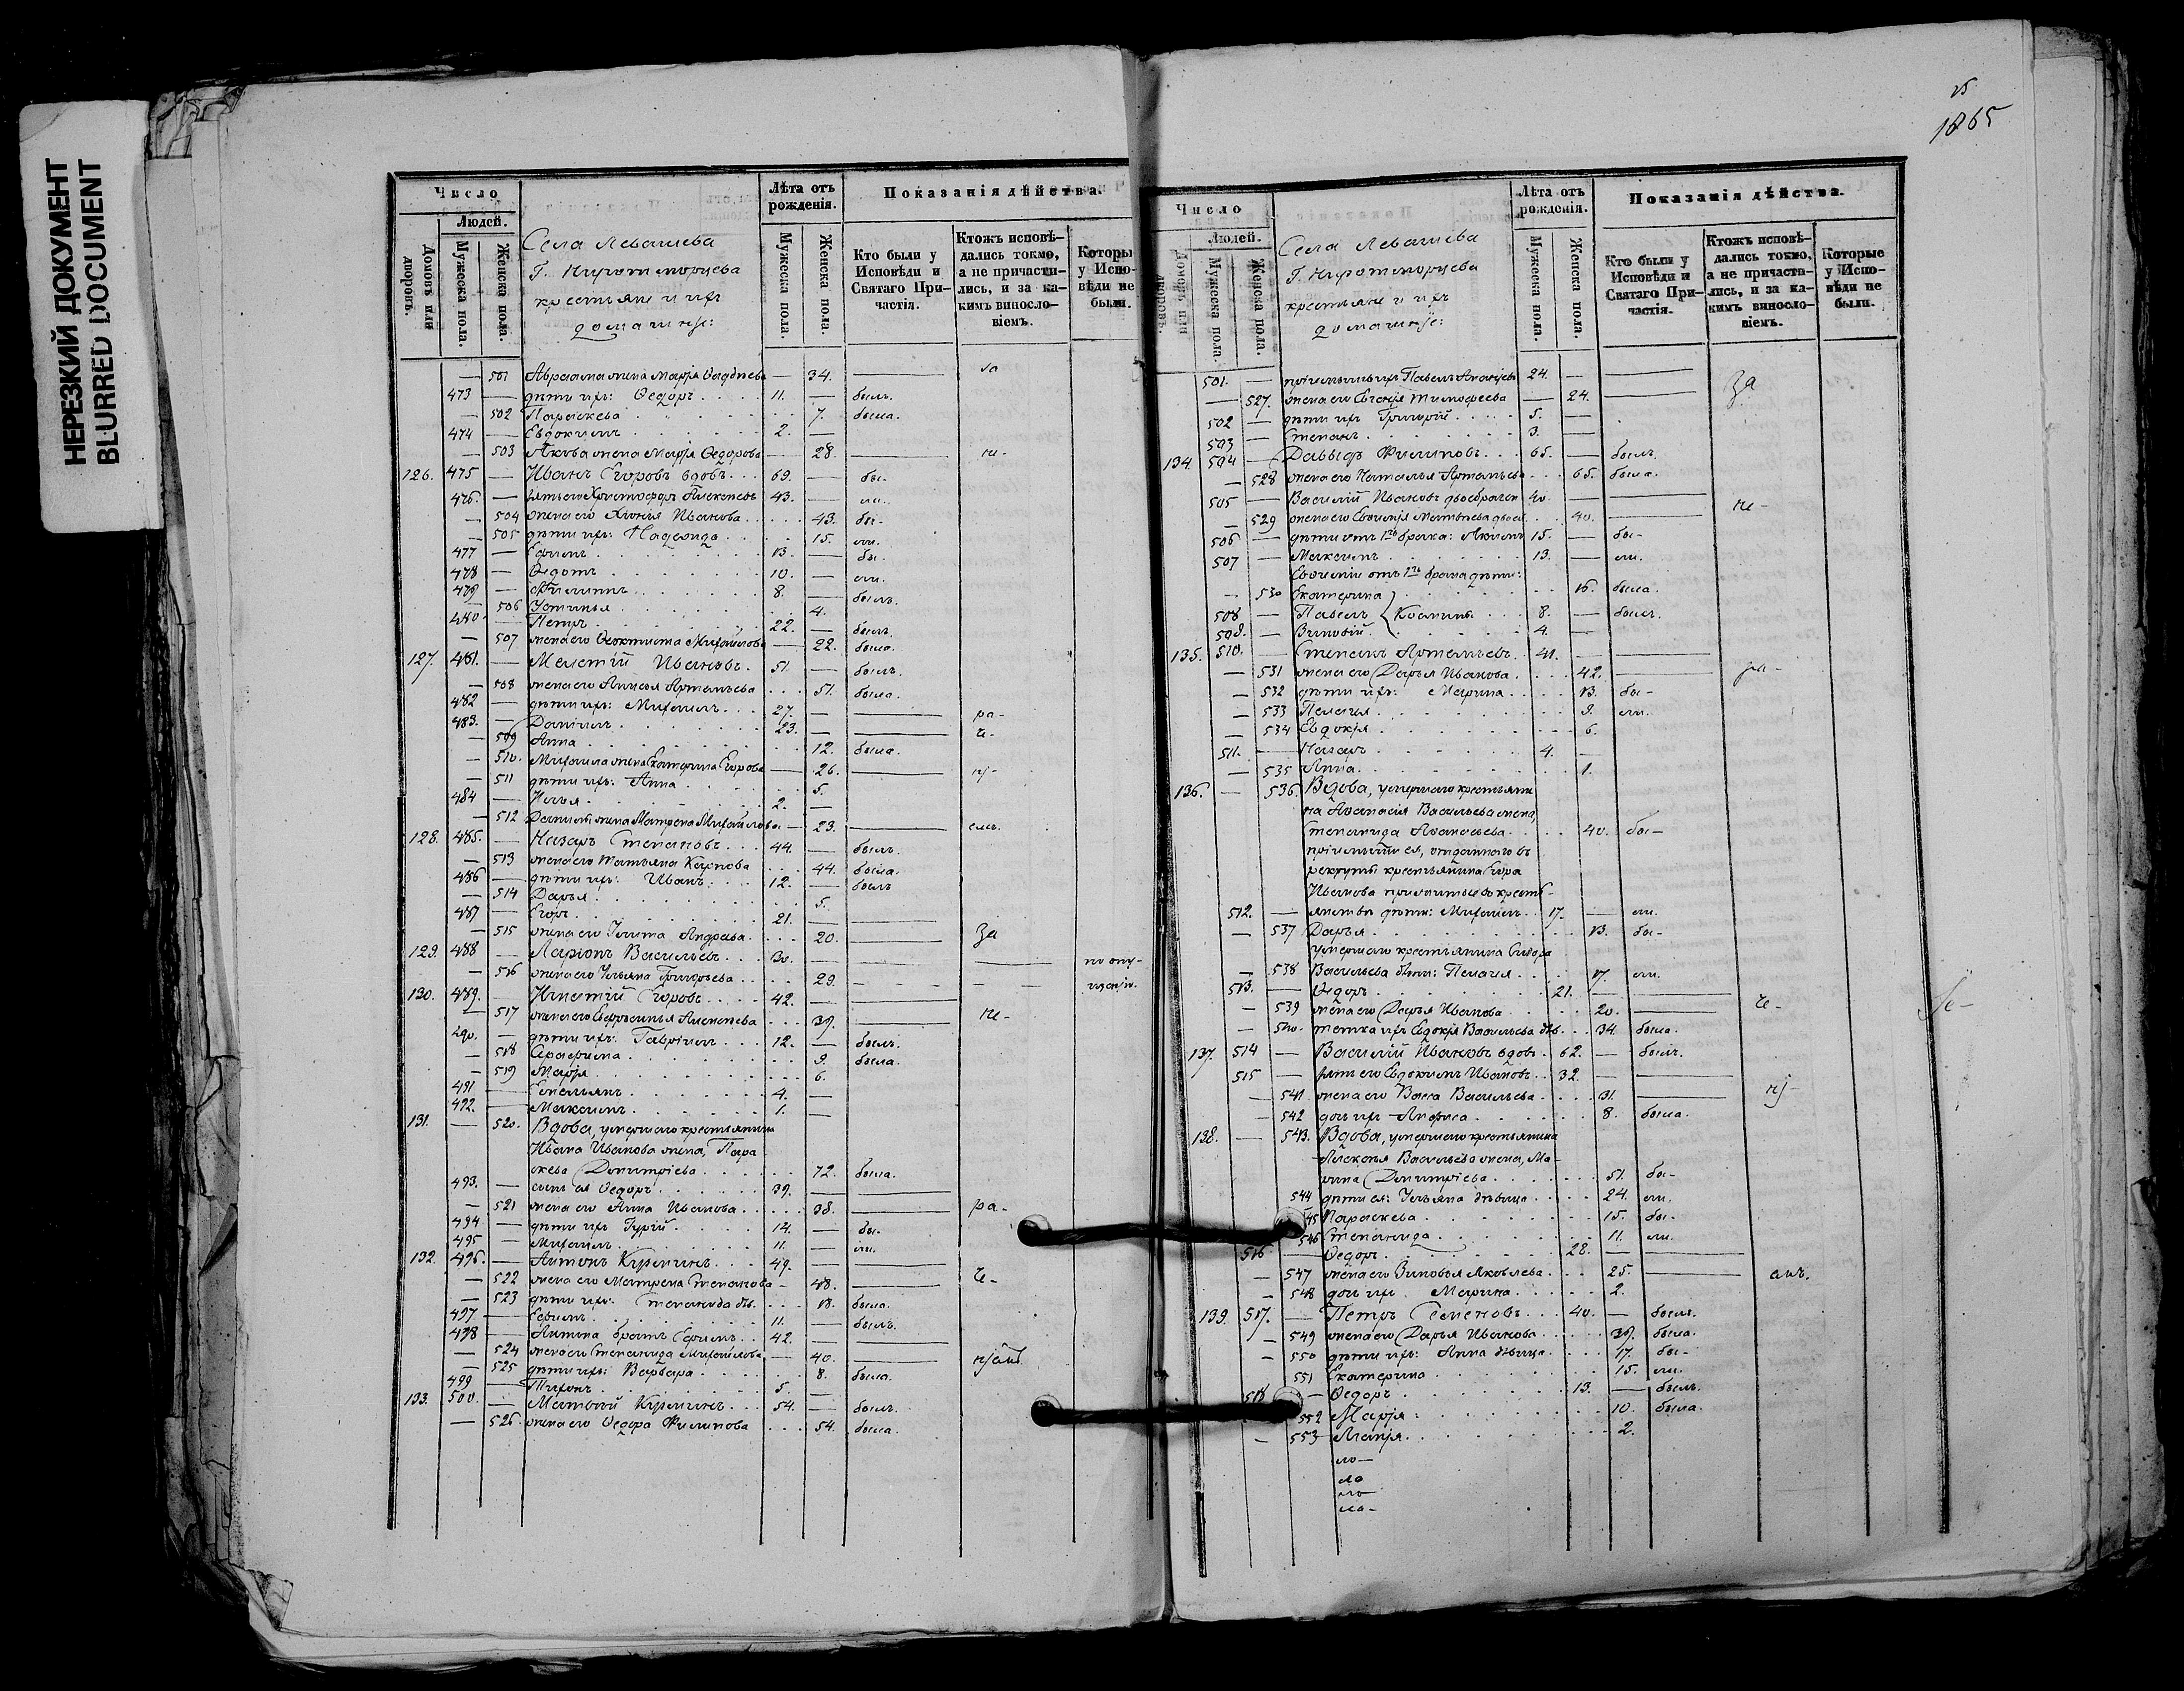 НЕРЕЗКИЙ ДОКУМЕНТ
BLURRED DOCUMENT
Число
Людей.
Домовъ или дворовъ.
Мужеска пола.
Женска пола.
Села Левашева
Г.
крестьяне и ихъ
домашніе:
Лѣта отъ рожденія.
Мужеска пола.
Женска пола.
Показанія дѣйства.
Кто были у Исповѣди и Святаго Причастія.
Ктожъ исповѣдались токмо, а не причастились, и за какимъ винословіемъ.
Которы у Испо- вѣди не были.
— 501 Авраама жена Марія Фаддѣева — 34. — за
473 — дѣти ихъ: Ѳедоръ 11. — былъ.
— 502 Параскева 7. была.
474 — Евдокимъ 2. —
— 503 Якова жена Марія Ѳедорова — 28. —
126. 475 — Иванъ Егоровъ вдовъ 69. — бы-
476. — зять его Христофоръ Алексѣевъ 43. — ли.
— 504 жена его Хіонія Иванова 43. бы-
— 505 дѣти ихъ: Надежда 15. ли.
477 — Ефимъ 13. — бы-
478 — Ѳедотъ 10. — ли.
479 — Филиппъ 8. — былъ.
— 506 Устинья 4.
480. — Петръ 22. — былъ.
— 507 жена его Ѳеоктиста Михайлова — 22. была.
127. 481. — Мелетій Ивановъ 51 — былъ.
— 508 жена его Анисья Артемьева 51. была.
482 — дѣти ихъ: Михаилъ 27. — — ра-
483. — Даніилъ 23. — —
— 509 Анна 12. была.
— 510. Михаила жена Екатерина Егорова — 26. —
— 511 дѣти ихъ: Анна 5.
484 — Илья 2. —
— 512 Даниила жена Матрена Михайлова — 23. —
128. 485. — Назаръ Степановъ 44. — былъ.
— 513 жена его Татьяна Карпова 44. была.
486 — дѣти ихъ: Иванъ 12. — былъ
— 514 Дарья 5.
487 — Егоръ 21. — —
— 515 жена его Улита Андреева 20. — За
129. 488 — Ларіонъ Васильевъ 30. — — — по опу-
— 516 жена его Ульяна Григорьева 29. — щенію.
130. 489. — Игнатій Егоровъ 42. — —
— 517 жена его Евфросинья Алексѣева 39. —
490. — дѣти ихъ: Гавріилъ 12. — былъ.
— 518 Серафима 9. была.
— 519 Марія 6.
491 — Емельянъ 4. —
492. — Максимъ 1. —
131. — 520. Вдова, умершаго крестьянина
Ивана Иванова жена, Пара
скева Димитріева 72. была.
493. — сынъ ея Ѳедоръ 39. — —
— 521 жена его Анна Иванова 38. — ра-
494 — дѣти ихъ Гурій 14. — бы-
495 — Михаилъ 11. — ли.
132. 496. — Антонъ Кириловъ 49. — —
— 522 жена его Матрена Степанова — 48. —
— 523 дѣти ихъ: Степанида дѣв. 18. была.
497 — Ефимъ 11. — былъ.
498 — Антона братъ Ефимъ 42. — —
— 524 жена его Степанида Михайлова — 40. —
— 525 дѣти ихъ: Варвара 8. была.
499 — Тихонъ 5. —
133. 500. — Матвѣй Кириловъ 54. — былъ.
— 526. жена его Ѳедора Филипова 54. была.
1865
Число
Людей.
Домовъ или дворовъ.
Мужеска пола.
Женска пола.
Села Левашева
Г.
крестьяне и ихъ
домашніе:
Лѣта отъ рожденія.
Мужеска пола.
Женска пола.
Показанія дѣйства.
Кто были у Исповѣди и Святаго Причастія.
Ктожъ исповѣдались токмо, а не причастились, и за какимъ винословіемъ.
Которые у Исповѣди не были.
501. — пріемышъ ихъ Павелъ 24. — — За
— 527. жена его Евгенія Тимофеева — 24. —
502 — дѣти ихъ Григорій 5. —
503 — Степанъ 3. —
134 504 — Давыдъ Филиповъ 65. — былъ.
— 528 жена его Наталья Артемьева 65. была.
505 — Василій Ивановъ двоебрачен 40. — —
— 529 жена его Евѳимія Матвѣева двоеб. 40. —
506 — дѣти отъ 1го брака: Акимъ 15. — бы-
507 — Максимъ 13. — ли.
Евѳиміи отъ 1го брака дѣти:
— 530 Екатерина 16. была.
508 — Павелъ Козмины 8. — былъ.
509. — Зиновій 4. —
135. 510. — Степанъ Артемьевъ 41. — —
— 531 жена его Дарья Иванова 42. —
— 532 дѣти ихъ: Марина 13. бы-
— 533 Пелагья 9. ли.
— 534 Евдокія 6.
511. — Назаръ 4. —
— 535 Анна 1.
136. — 536. Вдова, умершаго крестьяни
на Аѳанасія Васильева жена,
Степанида Аѳанасьева 40. бы-
пріемыши ея, отданнаго въ
рекруты крестьянина Егора
Иванова прижитые въ кресть-
512. — янствѣ дѣти: Михаилъ 17. — ли.
— 537 Дарья 13. бы-
умершаго крестьянина Сидора
— 538 Васильева дѣти: Пелагея 17. ли.
513. — Ѳедоръ 21. — —
— 539 жена его Дарья Иванова 20. —
— 540. тетка ихъ Евдокія Васильева дѣв. 34. была.
137. 514 — Василій Ивановъ вдовъ 62. — былъ.
515 — зять его Евдокимъ Ивановъ 32. — —
— 541 жена его Васса Васильева 31. —
— 542 дочь ихъ Анфиса 8. была.
138. — 543. Вдова, умершаго крестьянина
Алексѣя Васильева жена, Ма-
рина Димитріева 51. бы-
544 дѣти ея: Ульяна дѣвица 24. ли.
45 Параскева 15. бы-
546 Степанида 11. ли.
516 — Ѳедоръ 28. — —
— 547 жена его Зиновья Яковлева 25. —
— 548 дочь ихъ Марина 2.
139. 517. — Петръ Семеновъ 40. — былъ.
— 549 жена его Дарья Иванова 39. была.
— 550 дѣти ихъ: Анна дѣвица 17. бы-
551 Екатерина 15. ли.
518 — Ѳедоръ 13. — былъ.
552 Марія 10. была.
— 553 2.